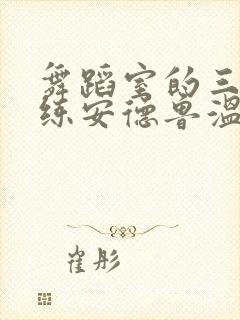 舞蹈室的三
练安德鲁温
崔彤